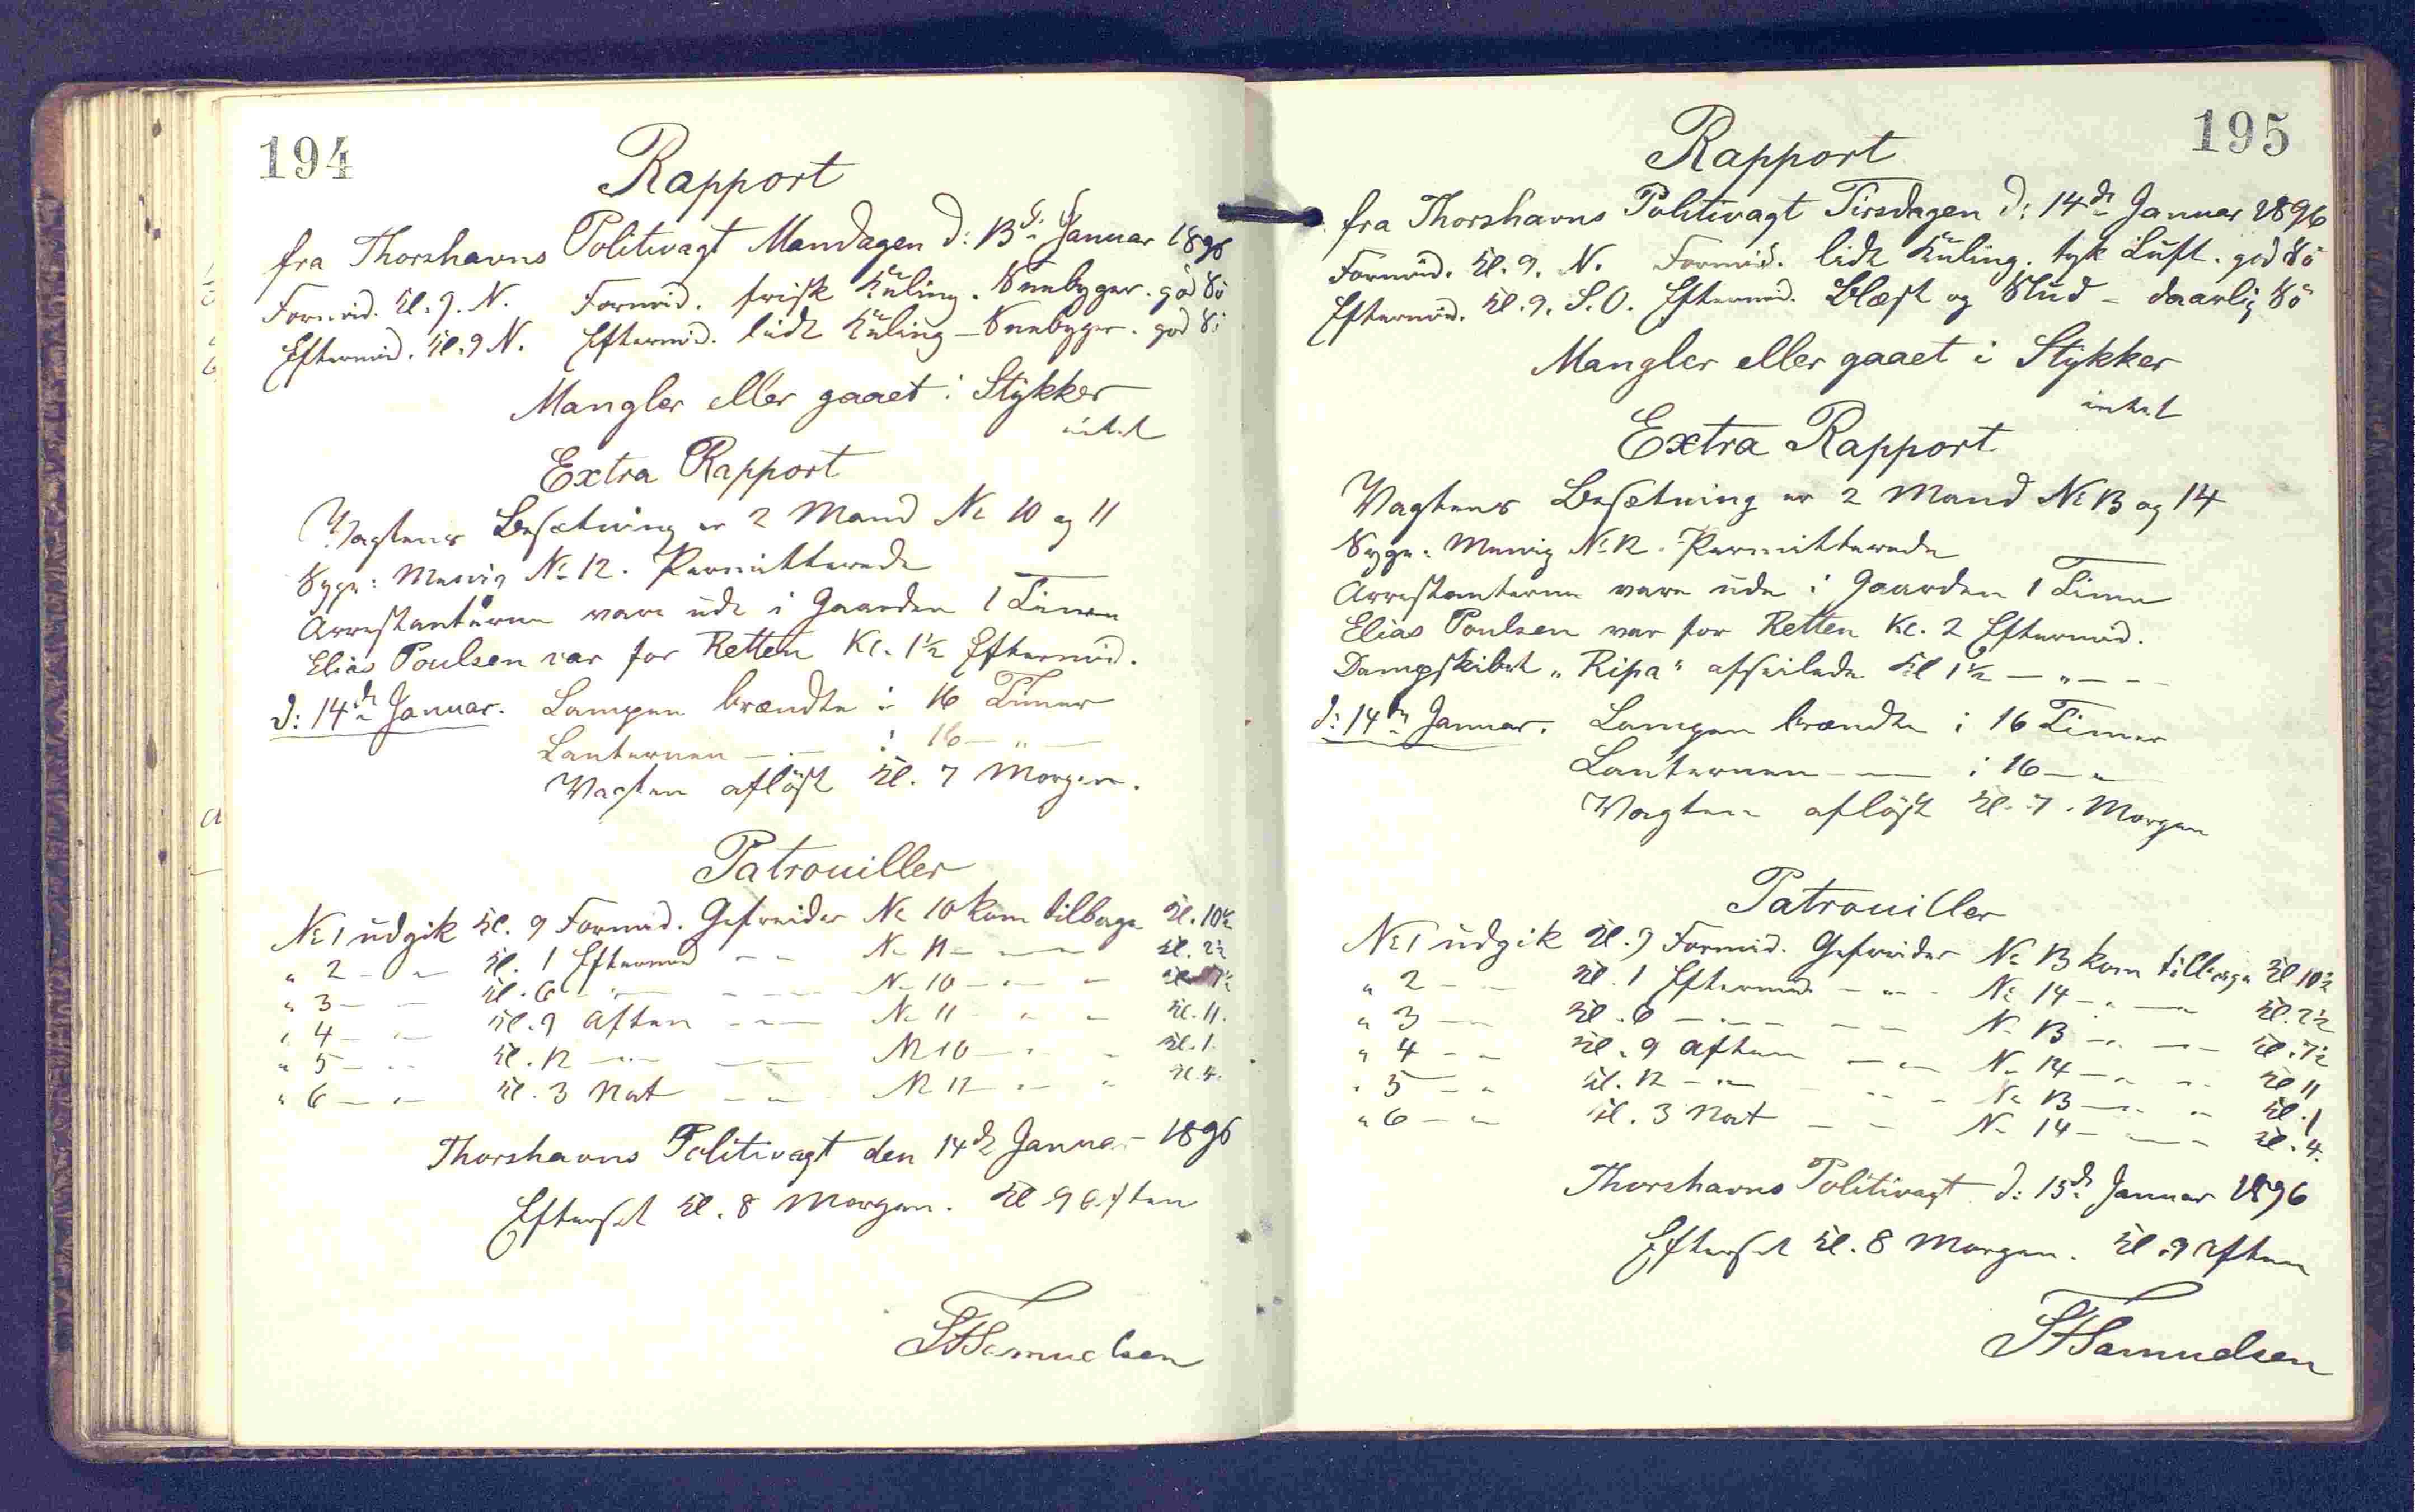 194
Rapport
fra Thorshavns Politivagt Mandagen d: 13de Januar 1896
Formid. Kl. 9. N. Formid. frisk Kuling. Snebyger. god Sö
Eftermid. Kl. 9 N. Eftermid. lidt Kuling - Snebyger. god Sö
Mangler eller gaaet i Stykker
intet
Extra Rapport
Vagtens Besætning er 2 Mand No 10 og 11
Syge: Menig No 12. Permitterede
Arrestanterne vare ude i Gaarden 1 Time
Elias Poulsen var for Retten Kl. 1½ Eftermid.
d: 14de Januar. Lampen brændte i 16 Timer
Lanternen — " — i 16 — " —
Vagten aflöst Kl. 7 Morgen.
Patrouiller
No 1 udgik Kl. 9 Formid. Gefreider No 10 kom tilbage Kl. 10½
" 2 - " - Kl. 1 Eftermid - " - No 11 - " - Kl. 2½
" 3 - " - Kl. 6 - " - - " - No 10 - " - Kl. 7½
" 4 - " - Kl. 9 Aften - " - No 11 - " - Kl. 11.
" 5 - " - Kl. 12 - " - - " - No 10 - " - Kl. 1.
" 6 - " - Kl. 3 Nat - " - No 11 - " - Kl. 4.
Thorshavns Politivagt den 14de Januar 1896
Efterset Kl. 8 Morgen. Kl 9 Aften
Samuelsen
195
Rapport
fra Thorshavns Politivagt Tirsdagen d: 14de Januar 1896
Formid. Kl. 9. N. Formid. lidt Kuling. tyk Luft. god Sö
Eftermid. Kl. 9. S.O. Eftermid. Blæst og Slud - daarlig Sö
Mangler eller gaaet i Stykker
intet
Extra Rapport
Vagtens Besætning er 2 Mand No 13 og 14
Syge: Menig No 12. Permitterede
Arrestanterne vare ude i Gaarden 1 Time
Elias Poulsen var for Retten Kl. 2 Eftermid.
Dampskibet "Ripa" afseilede Kl 1½ — " —
d: 14de Januar. Lampen brændte i 16 Timer
Lanternen — " — i 16 — " —
Vagten aflöst Kl. 7. Morgen
Patrouiller
No 1 udgik Kl. 9 Formid. Gefreider No 13 kom tilbage Kl 10½
" 2 - " - Kl. 1 Eftermid - " - No 14 - " - Kl. 2½
" 3 - " - Kl. 6 - " - - " - No 13 - " - Kl. 7½
" 4 - " - Kl. 9 Aften - " - No 14 - " - Kl 11
" 5 - " - Kl. 12 - " - - " - No 13 - " - Kl. 1
" 6 - " - Kl. 3 Nat - " - No 14 - " - Kl. 4.
Thorshavns Politivagt d: 15de Januar 1896
Efterset Kl. 8 Morgen. Kl 9 Aften
Samuelsen